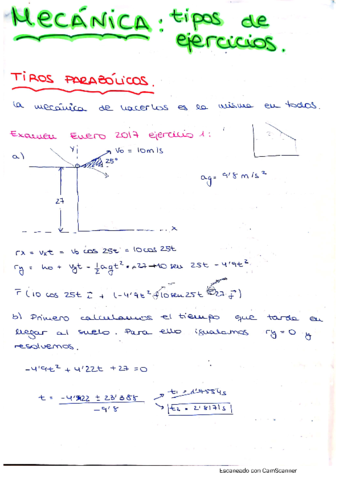 MECÁNICA: tipos de
ejercicios.
TIROS PARABÓLICOS.
La mecánica de hacerlos es la misma en todos.
Examen Enero 2017 ejercicio 1:
a)
y
v₀ = 10 m/s
25°
ag = 9'8 m/s²
27
x
rx = vxt = v₀ cos 25t = 10 cos 25t
b) Primero calculamos el tiempo que tarda en
llegar al suelo. Para ello igualamos ry = 0 y
resolvemos.
-4'9t² + 4'22t + 27 = 0
t =
-9'8
t₂ = 2'817 s
Escaneado con CamScanner